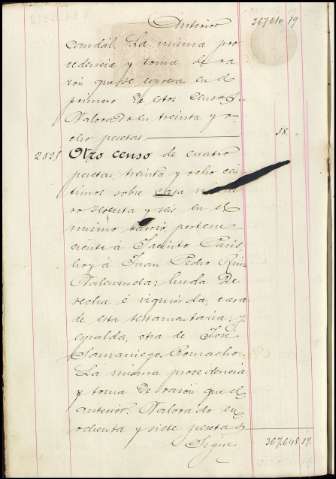 Anterior 267,610 19
caudál. La misma pro
cedencia y toma de ra
zón que se expresa en el
primero de estos censos.
Valorado en treinta y o
cho pesetas 38.
2,821 Otro censo de cuatro
pesetas treinta y ocho cén
timos sobre casa
ro ochenta y seis en el
mismo barrio, pertene
ciente á Jacinto
hoy á Juan Pedro
Valenzuela; linda de
recha é izquierda, casa
de esta testamentaría; y
espalda, otra de José
Samaniego Camacho.
La misma procedencia
y toma de razón que el
anterior. Valorado en
ochenta y siete pesetas
Sigue 267,648 19